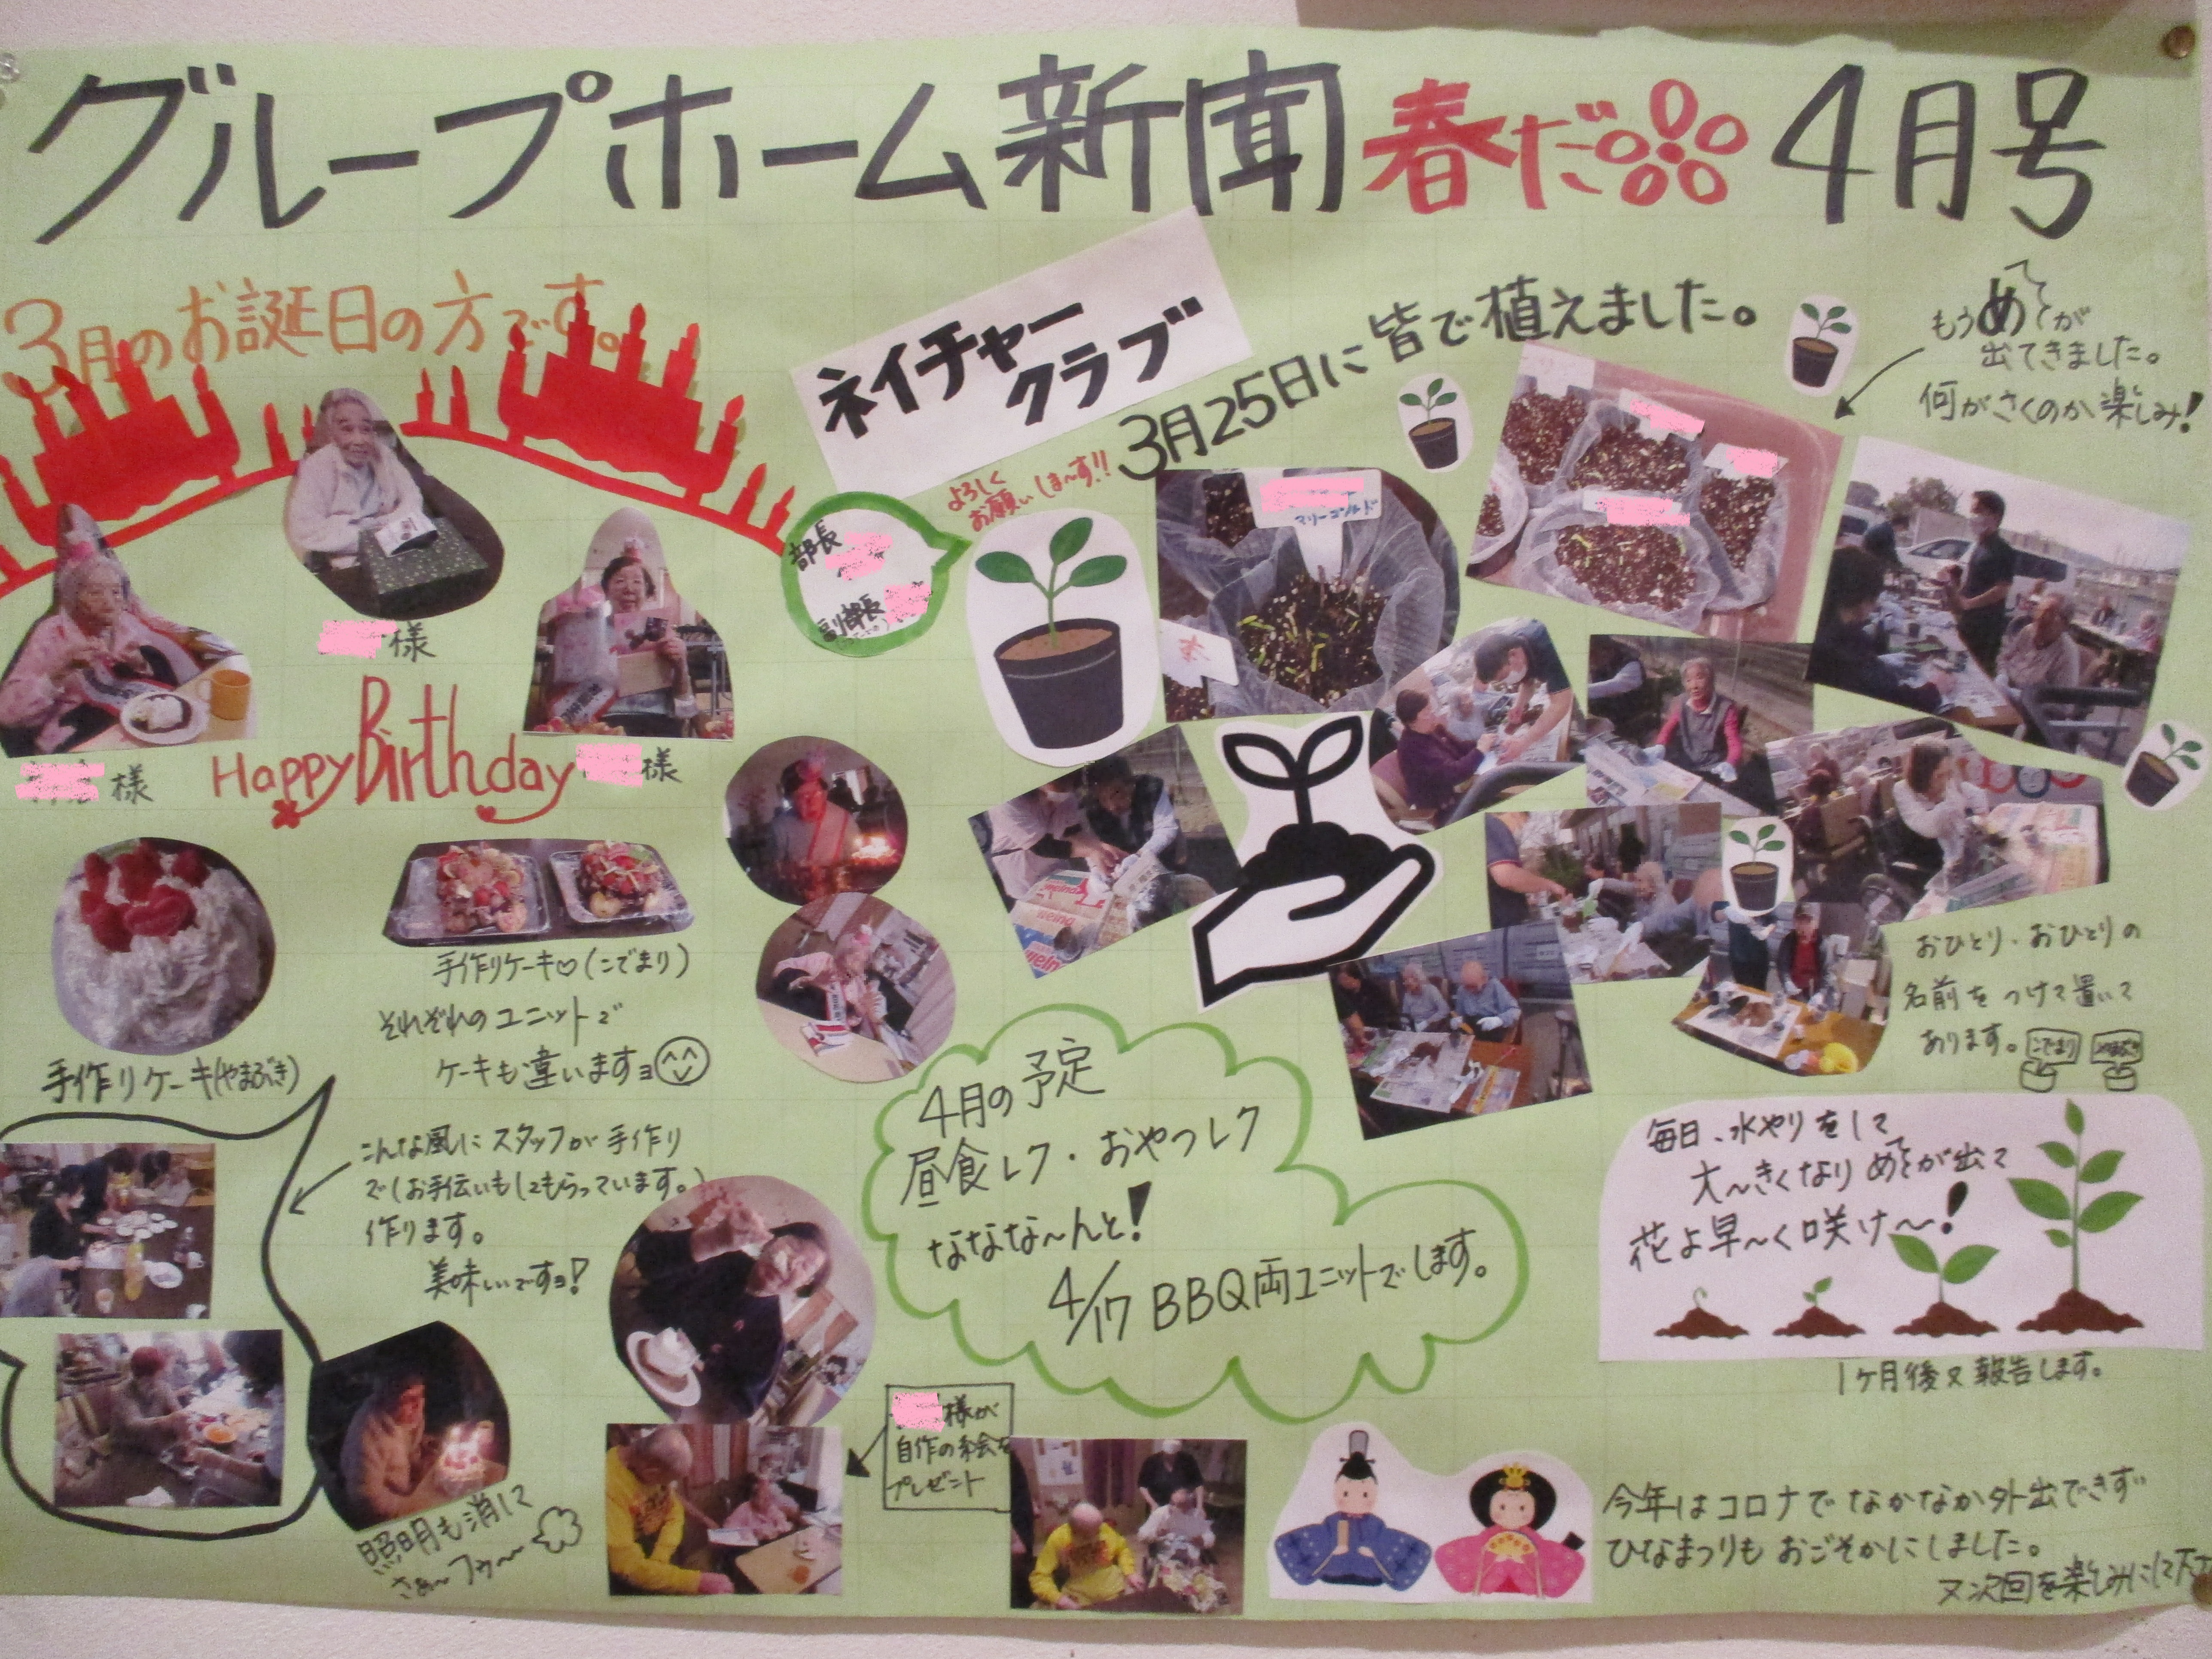 グループホーム新聞 春だ 4月号
3月のお誕生日の方です。
様
様
様
Happy Birthday
手作りケーキ(やまぶき)
手作りケーキ♡(こでまり)
それぞれのユニットで
ケーキも違いますョ
こんな風にスタッフが手作り
で(お手伝いもしてもらっています。)
作ります。
美味しいですョ!
照明も消して
さぁ〜フゥ〜
様が
自作の絵を
プレゼント
ネイチャー
クラブ
3月25日に皆で植えました。
よろしく
お願いしま〜す!!
部長
副部長
マリーゴールド
もうめが
出てきました。
何がさくのか楽しみ!
おひとり・おひとりの
名前をつけて置いて
あります。
こでまり
やまぶき
4月の予定
昼食レク・おやつレク
ななな〜んと!
4/17 BBQ両ユニットでします。
毎日、水やりをして
大〜きくなりめが出て
花よ早〜く咲け〜!
1ヶ月後又報告します。
今年はコロナでなかなか外出できず
ひなまつりもおごそかにしました。
又次回を楽しみにして下さい